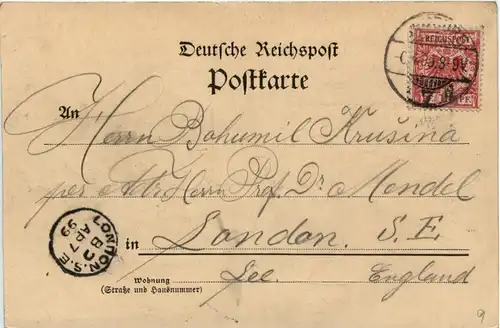 REICHSPOST
Deutsche Reichspost
Postkarte
An
Herrn Bohumil Krušina
per Adr. Herrn Prof. Dr. Mendel
in London. S. E.
Lee. England
Wohnung
(Straße und Hausnummer)
LONDON. S.E
B
AP 7
99
9